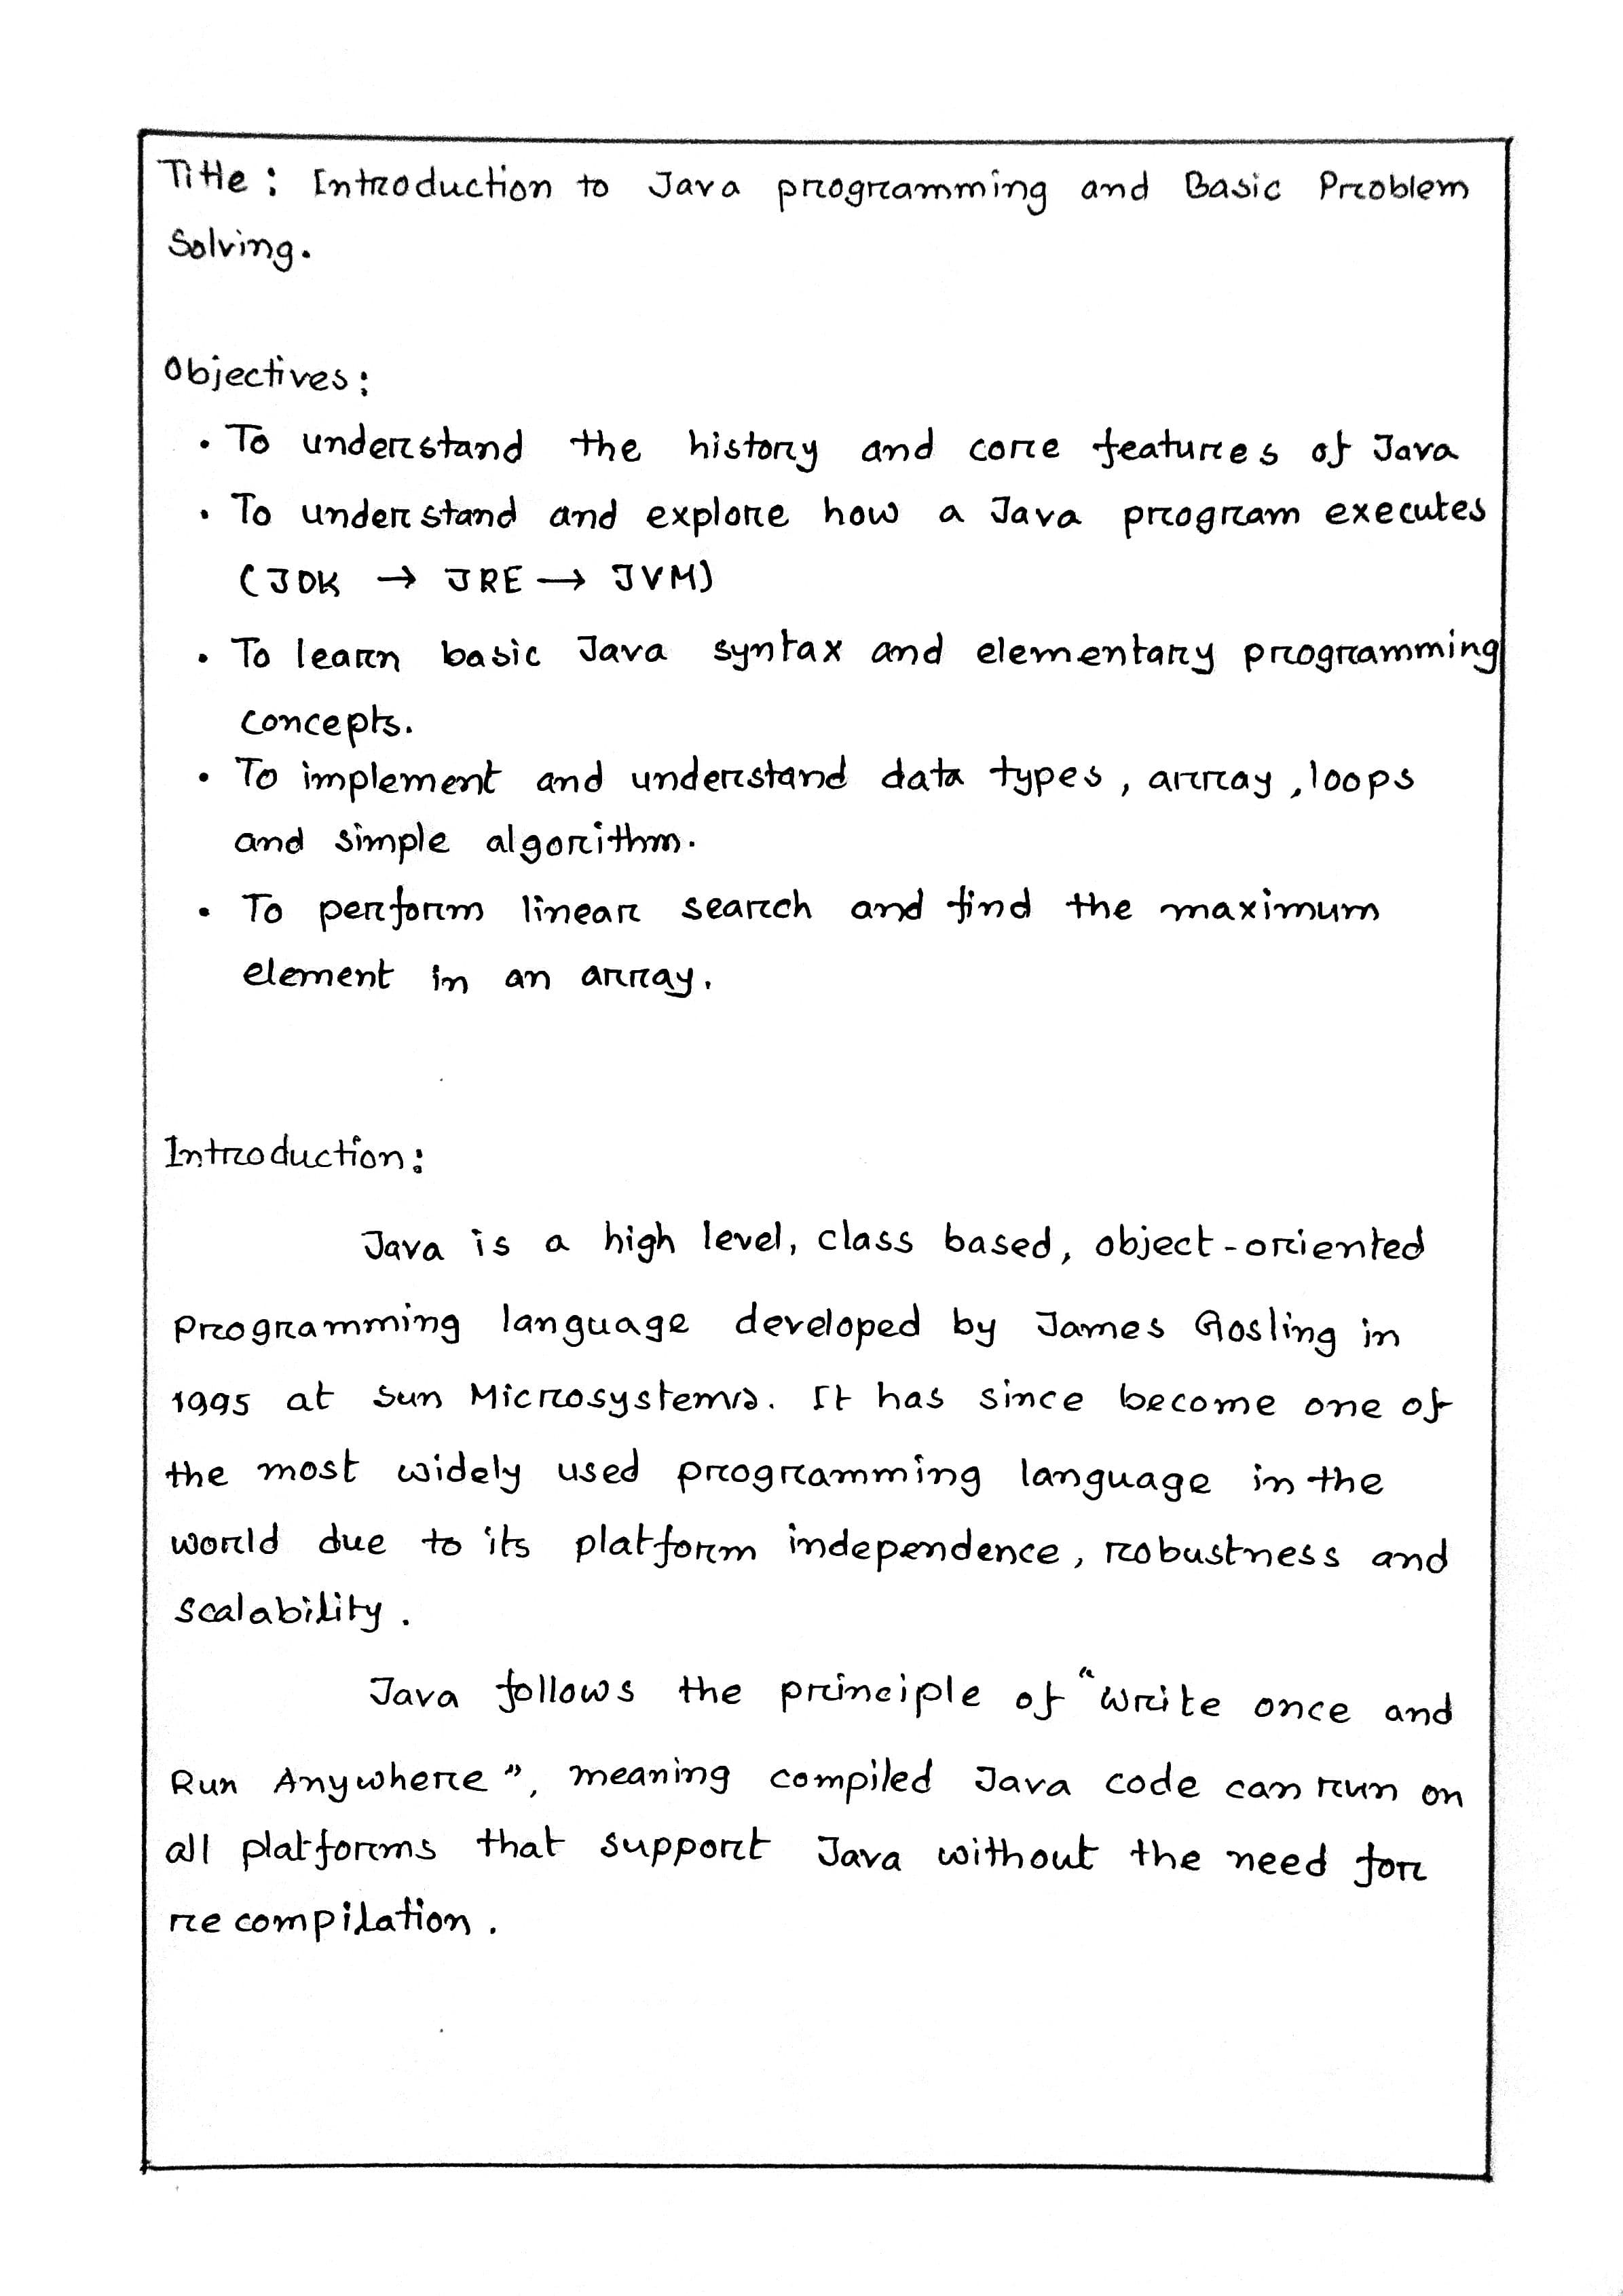 Title : Introduction to Java programming and Basic Problem
Solving.
Objectives :
• To understand the history and core features of Java
• To understand and explore how a Java program executes
(JDK → JRE → JVM)
• To learn basic Java syntax and elementary programming
concepts.
• To implement and understand data types, array, loops
and simple algorithm.
• To perform linear search and find the maximum
element in an array.
Introduction :
Java is a high level, class based, object-oriented
Programming language developed by James Gosling in
1995 at Sun Microsystems. It has since become one of
the most widely used programming language in the
world due to its platform independence, robustness and
scalability.
Java follows the principle of "Write once and
Run Anywhere", meaning compiled Java code can run on
all platforms that support Java without the need for
recompilation.